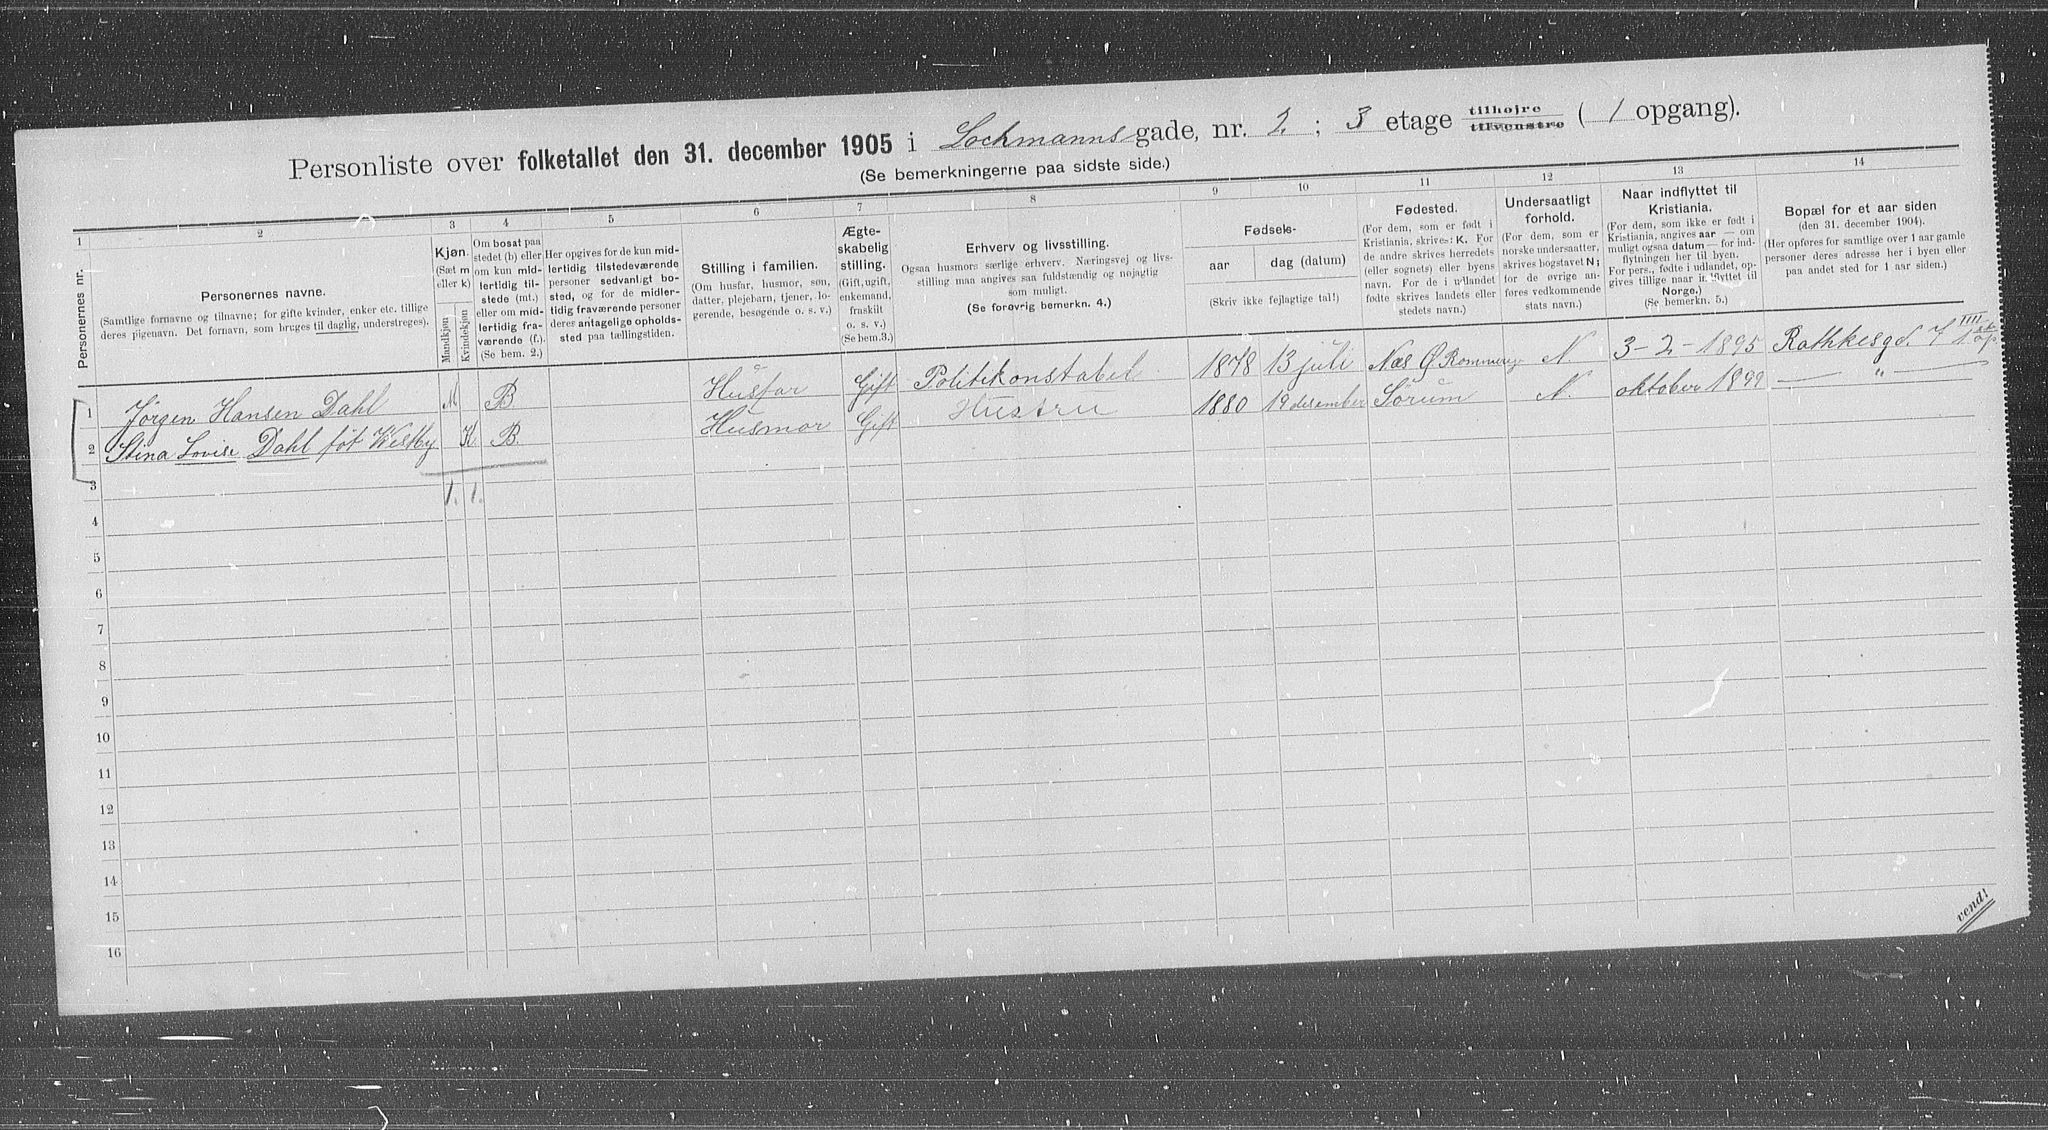 Personliste over folketallet den 31. december 1905 i Lochmanns gade, nr. 2 ; 3 etage tilhøjre tilvenstre ( 1 opgang).
(Se bemerkningerne paa sidste side.)
1 2 3 4 5 6 7 8 9 10 11 12 13 14
Personernes nr.
Personernes navne.
(Samtlige fornavne og tilnavne; for gifte kvinder, enker etc. tillige
deres pigenavn. Det fornavn, som bruges til daglig, understreges).
Kjøn.
(Sæt m
eller k)
Mandkjøn
Kvindekjøn
Om bosat paa
stedet (b) eller
om kun mid-
lertidig til-
stede (mt.)
eller om mid-
lertidig fra-
værende (f.).
(Se bem. 2.)
Her opgives for de kun mid-
lertidig tilstedeværende
personer sedvanlig bo-
sted, og for de midler-
tidig fraværende personer
deres antagelige opholds-
sted paa tællingstiden.
Stilling i familien.
(Om husfar, husmor, søn,
datter, plejebarn, tjener, lo-
gerende, besøgende o. s. v.)
Ægte-
skabelig
stilling.
(Gift, ugift,
enkemand,
fraskilt
o. s. v.)
(Se bem.3.)
Erhverv og livsstilling.
Ogsaa husmors særlige erhverv. Næringsvej og livs-
stilling maa angives saa fuldstændig og nøjagtig
som muligt.
(Se forøvrig bemerkn. 4.)
Fødsels-
aar
dag (datum)
(Skriv ikke fejlagtige tal!)
Fødested.
(For dem, som er født i
Kristiania, skrives: K. For
de andre skrives herredets
(eller sognets) eller byens
navn. For de i udlandet
fødte skrives landets eller
stedets navn.)
Undersaatligt
forhold.
(For dem, som er
norske undersaatter,
skrives bogstavet N;
for de øvrige an-
føres vedkommende
stats navn.)
Naar indflyttet til
Kristiania.
(For dem, som ikke er født i
Kristiania, angives aar — om
muligt ogsaa datum — for ind-
flytningen her til byen.
For pers., fødte i udlandet, op-
gives tillige naar indflyttet til
Norge.)
(Se bemerkn. 5.)
Bopæl for et aar siden
(den 31. december 1904).
(Her opføres for samtlige over 1 aar gamle
personer deres adresse her i byen eller
paa andet sted for 1 aar siden.)
1 Jørgen Hansen Dahl M B Husfar Gift Politikonstabel 1878 13 juli Næs Ø Romerige N. 3-2-1895 Rathkesgd. 7 IIII 1 op
2 Stina Lovise Dahl føt Westby K B. Husmor Gift Hustru 1880 19 desember Sørum N. oktober 1899 — " —
3 1. 1.
4
5
6
7
8
9
10
11
12
13
14
15
16
vend!